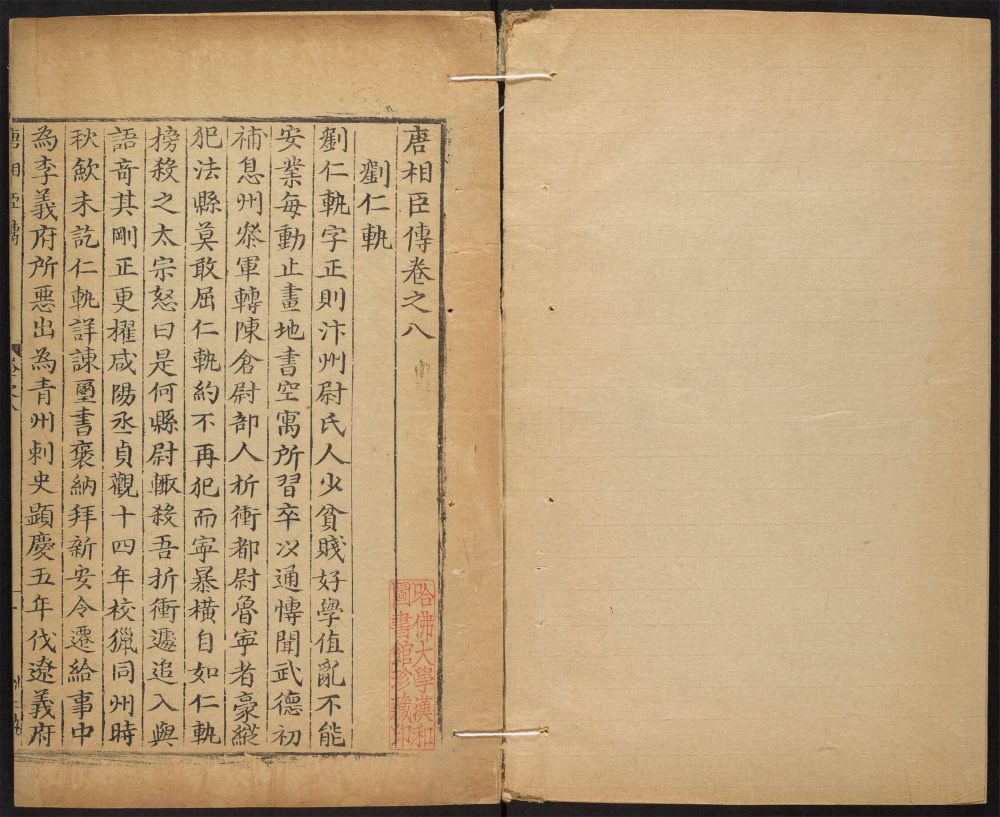 唐相臣傳卷之八
劉仁軌
劉仁軌字正則汴州尉氏人少貧賤好學值亂不能
安業每動止畫地書空寓所習卒以通愽聞武德初
補息州叅軍轉陳倉尉部人折衝都尉魯寧者豪縱
犯法縣莫敢屈仁軌約不再犯而寧暴橫自如仁軌
榜殺之太宗怒曰是何縣尉輙殺吾折衝遽追入與
語竒其剛正更擢咸陽丞貞觀十四年校獵同州時
秋歛未訖仁軌詳諫璽書褒納拜新安令遷給事中
為李義府所惡出為青州刺史顯慶五年伐遼義府
唐相臣傳
卷之八
哈佛大學漢和
圖書館珍藏印